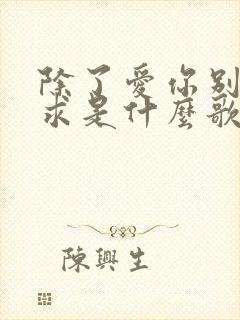 除了愛你別
求是什麼歌
陳興生